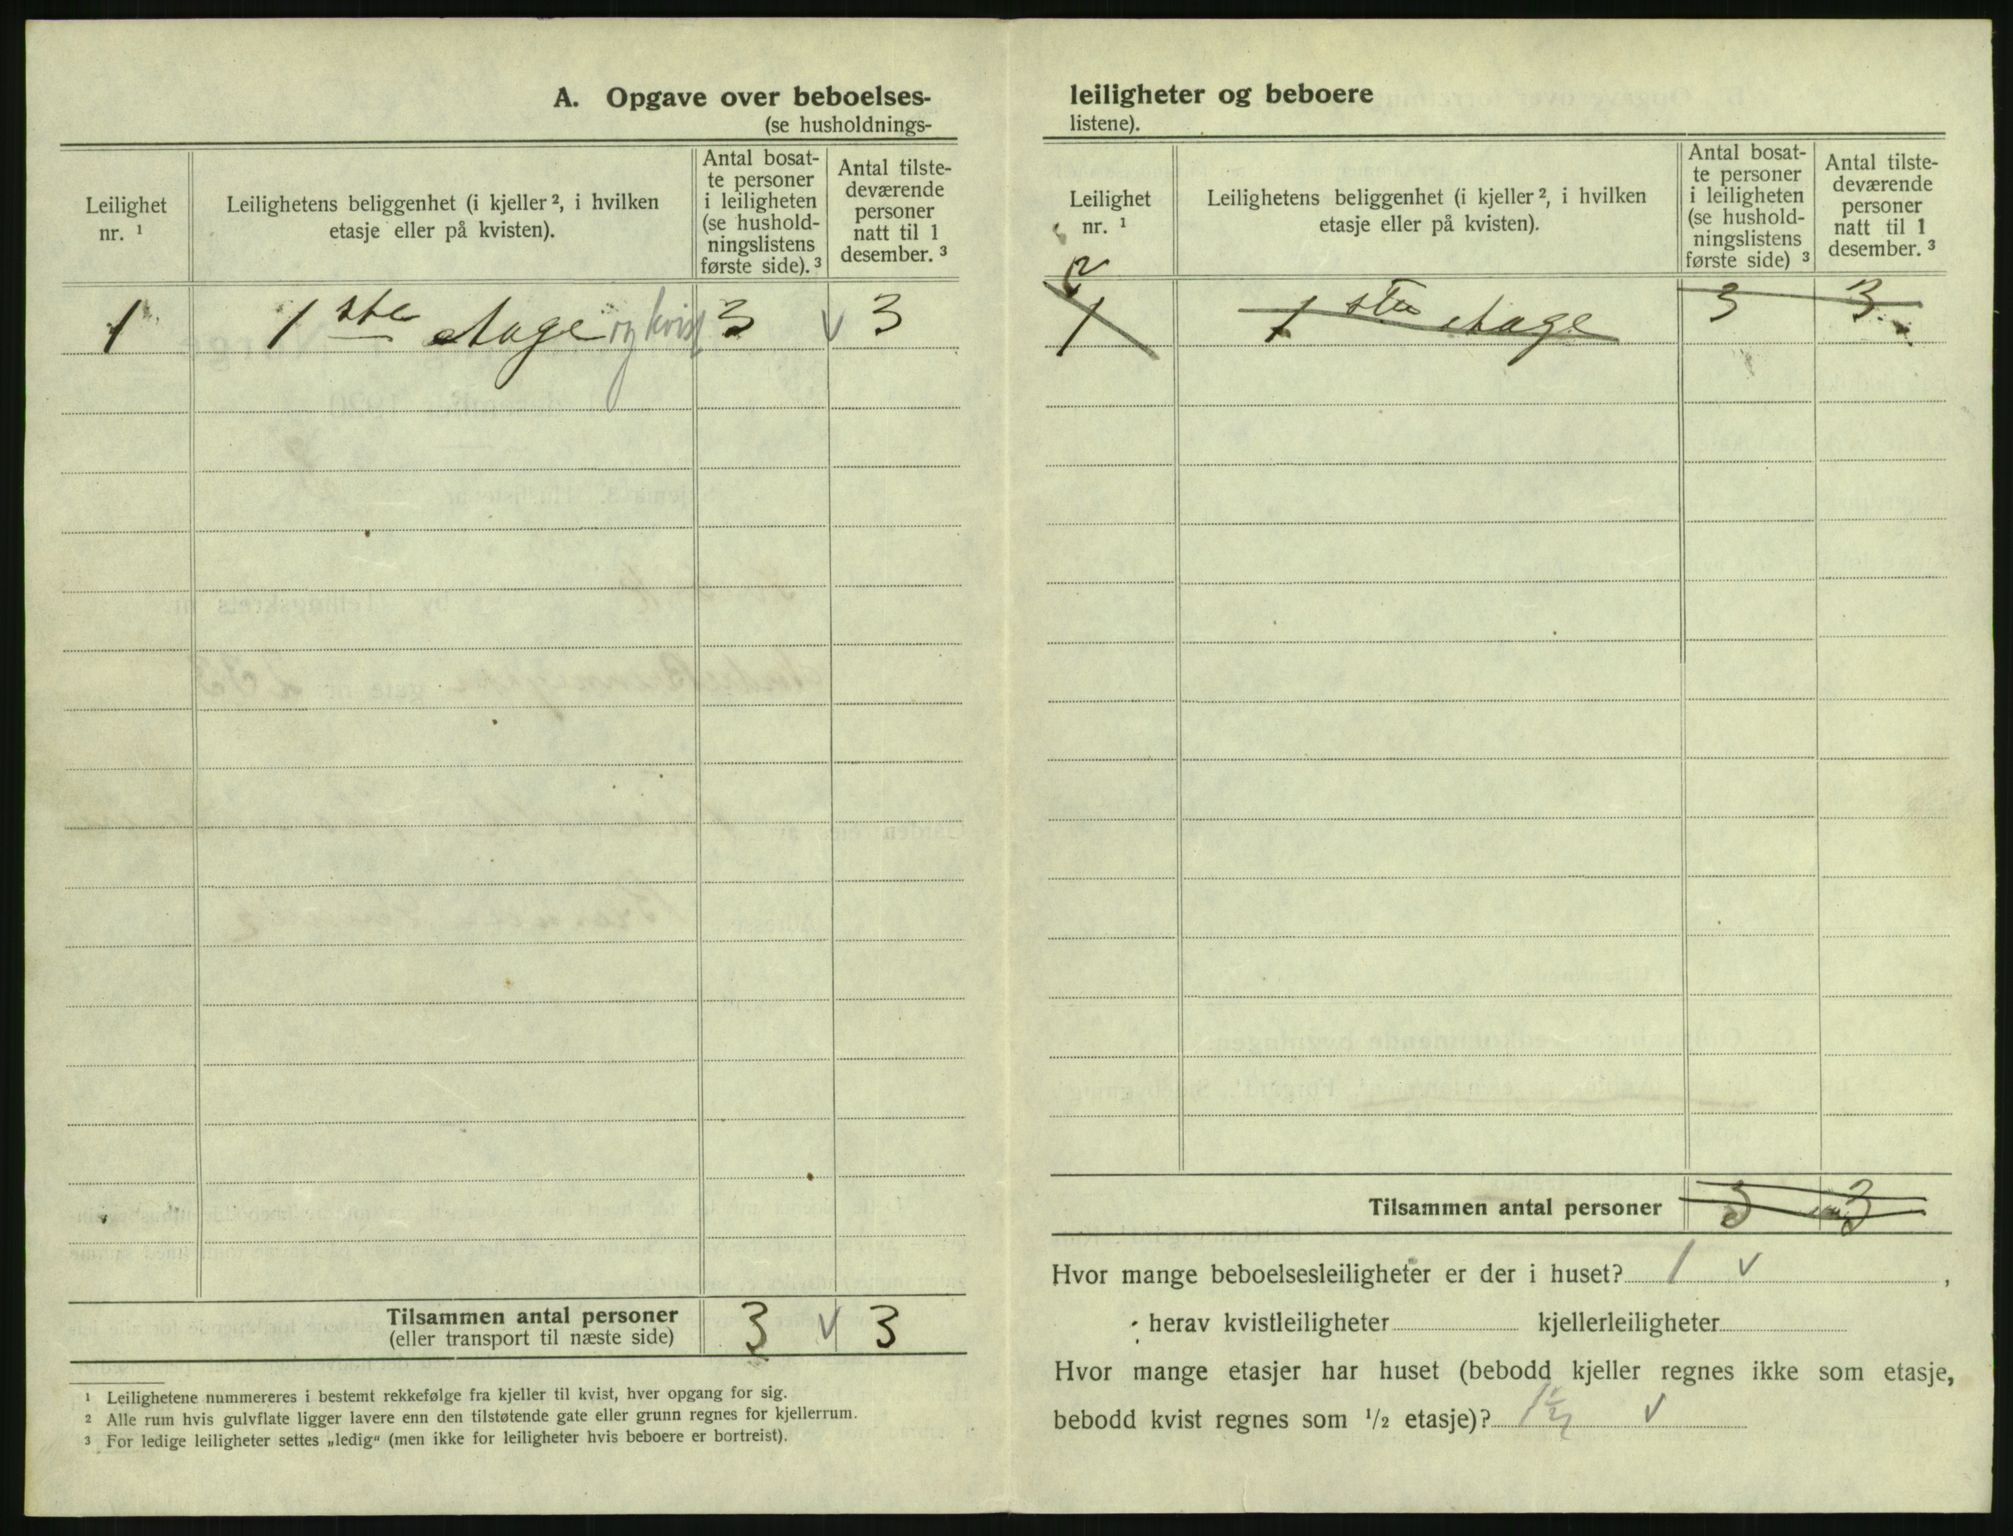 A. Opgave over beboelses-
(se husholdnings-
Leilighet
nr. ¹
Leilighetens beliggenhet (i kjeller ², i hvilken
etasje eller på kvisten).
Antal bosat-
te personer
i leiligheten
(se hushold-
ningslistens
første side). ³
Antal tilste-
deværende
personer
natt til 1
desember. ³
1 1ste etage og kvist 3 v 3
Tilsammen antal personer 3 v 3
(eller transport til næste side)
¹ Leilighetene nummereres i bestemt rekkefølge fra kjeller til kvist, hver opgang for sig.
² Alle rum hvis gulvflate ligger lavere enn den tilstøtende gate eller grunn regnes for kjellerrum.
³ For ledige leiligheter settes „ledig“ (men ikke for leiligheter hvis beboere er bortreist).
leiligheter og beboere
listene).
Leilighet
nr. ¹
Leilighetens beliggenhet (i kjeller ², i hvilken
etasje eller på kvisten).
Antal bosat-
te personer
i leiligheten
(se hushold-
ningslistens
første side) ³
Antal tilste-
deværende
personer
natt til 1
desember. ³
2
1 1 ste etage 3 3
Tilsammen antal personer 3 3
Hvor mange beboelsesleiligheter er der i huset? 1 v ,
herav kvistleiligheter kjellerleiligheter
Hvor mange etasjer har huset (bebodd kjeller regnes ikke som etasje,
bebodd kvist regnes som ½ etasje)? 1½ v